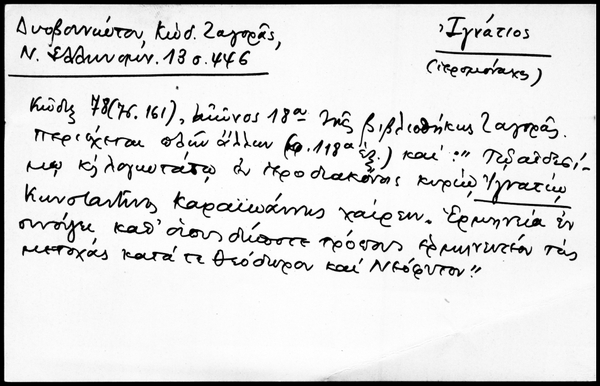 Δυοβουνιώτου, Κώδ. Ζαγορᾶς,
Ν. Ἑλληνομν. 13 σ. 446
Ἰγνάτιος
(ἱερομόναχος)
Κῶδιξ 78 (76. 161), αἰῶνος 18ου τῆς βιβλιοθήκης Ζαγορᾶς.
Περιέχεται πλὴν ἄλλων (φ. 118α ἑξ.) καί: "Τῷ αἰδεσί-
μῳ κ λογιωτάτῳ ἐν ἱεροδιακόνοις κυρίῳ Ἰγνατίῳ
Κωνσταντῖνος Καραϊωάννης χαίρειν. Ἑρμηνεία ἐν
συνόψει καθ' ὁποσδίποτε τρόπους ἑρμηνευτέον τὰς
μετοχὰς κατά τε Θεόδωρον καὶ Νεόφυτον"